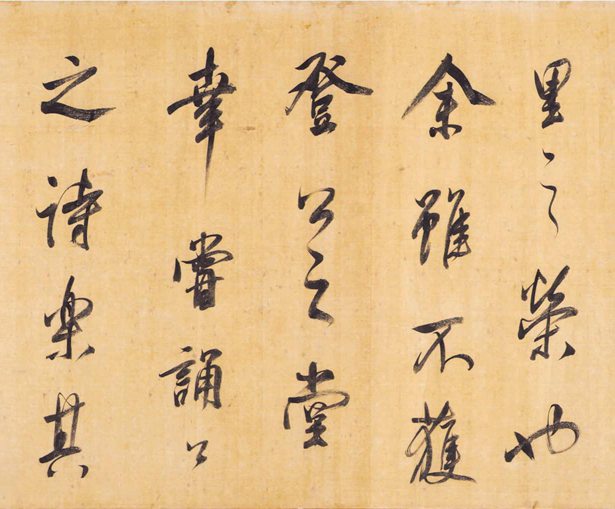 里之榮也
余雖不獲
登公之堂
幸嘗誦公
之詩樂其